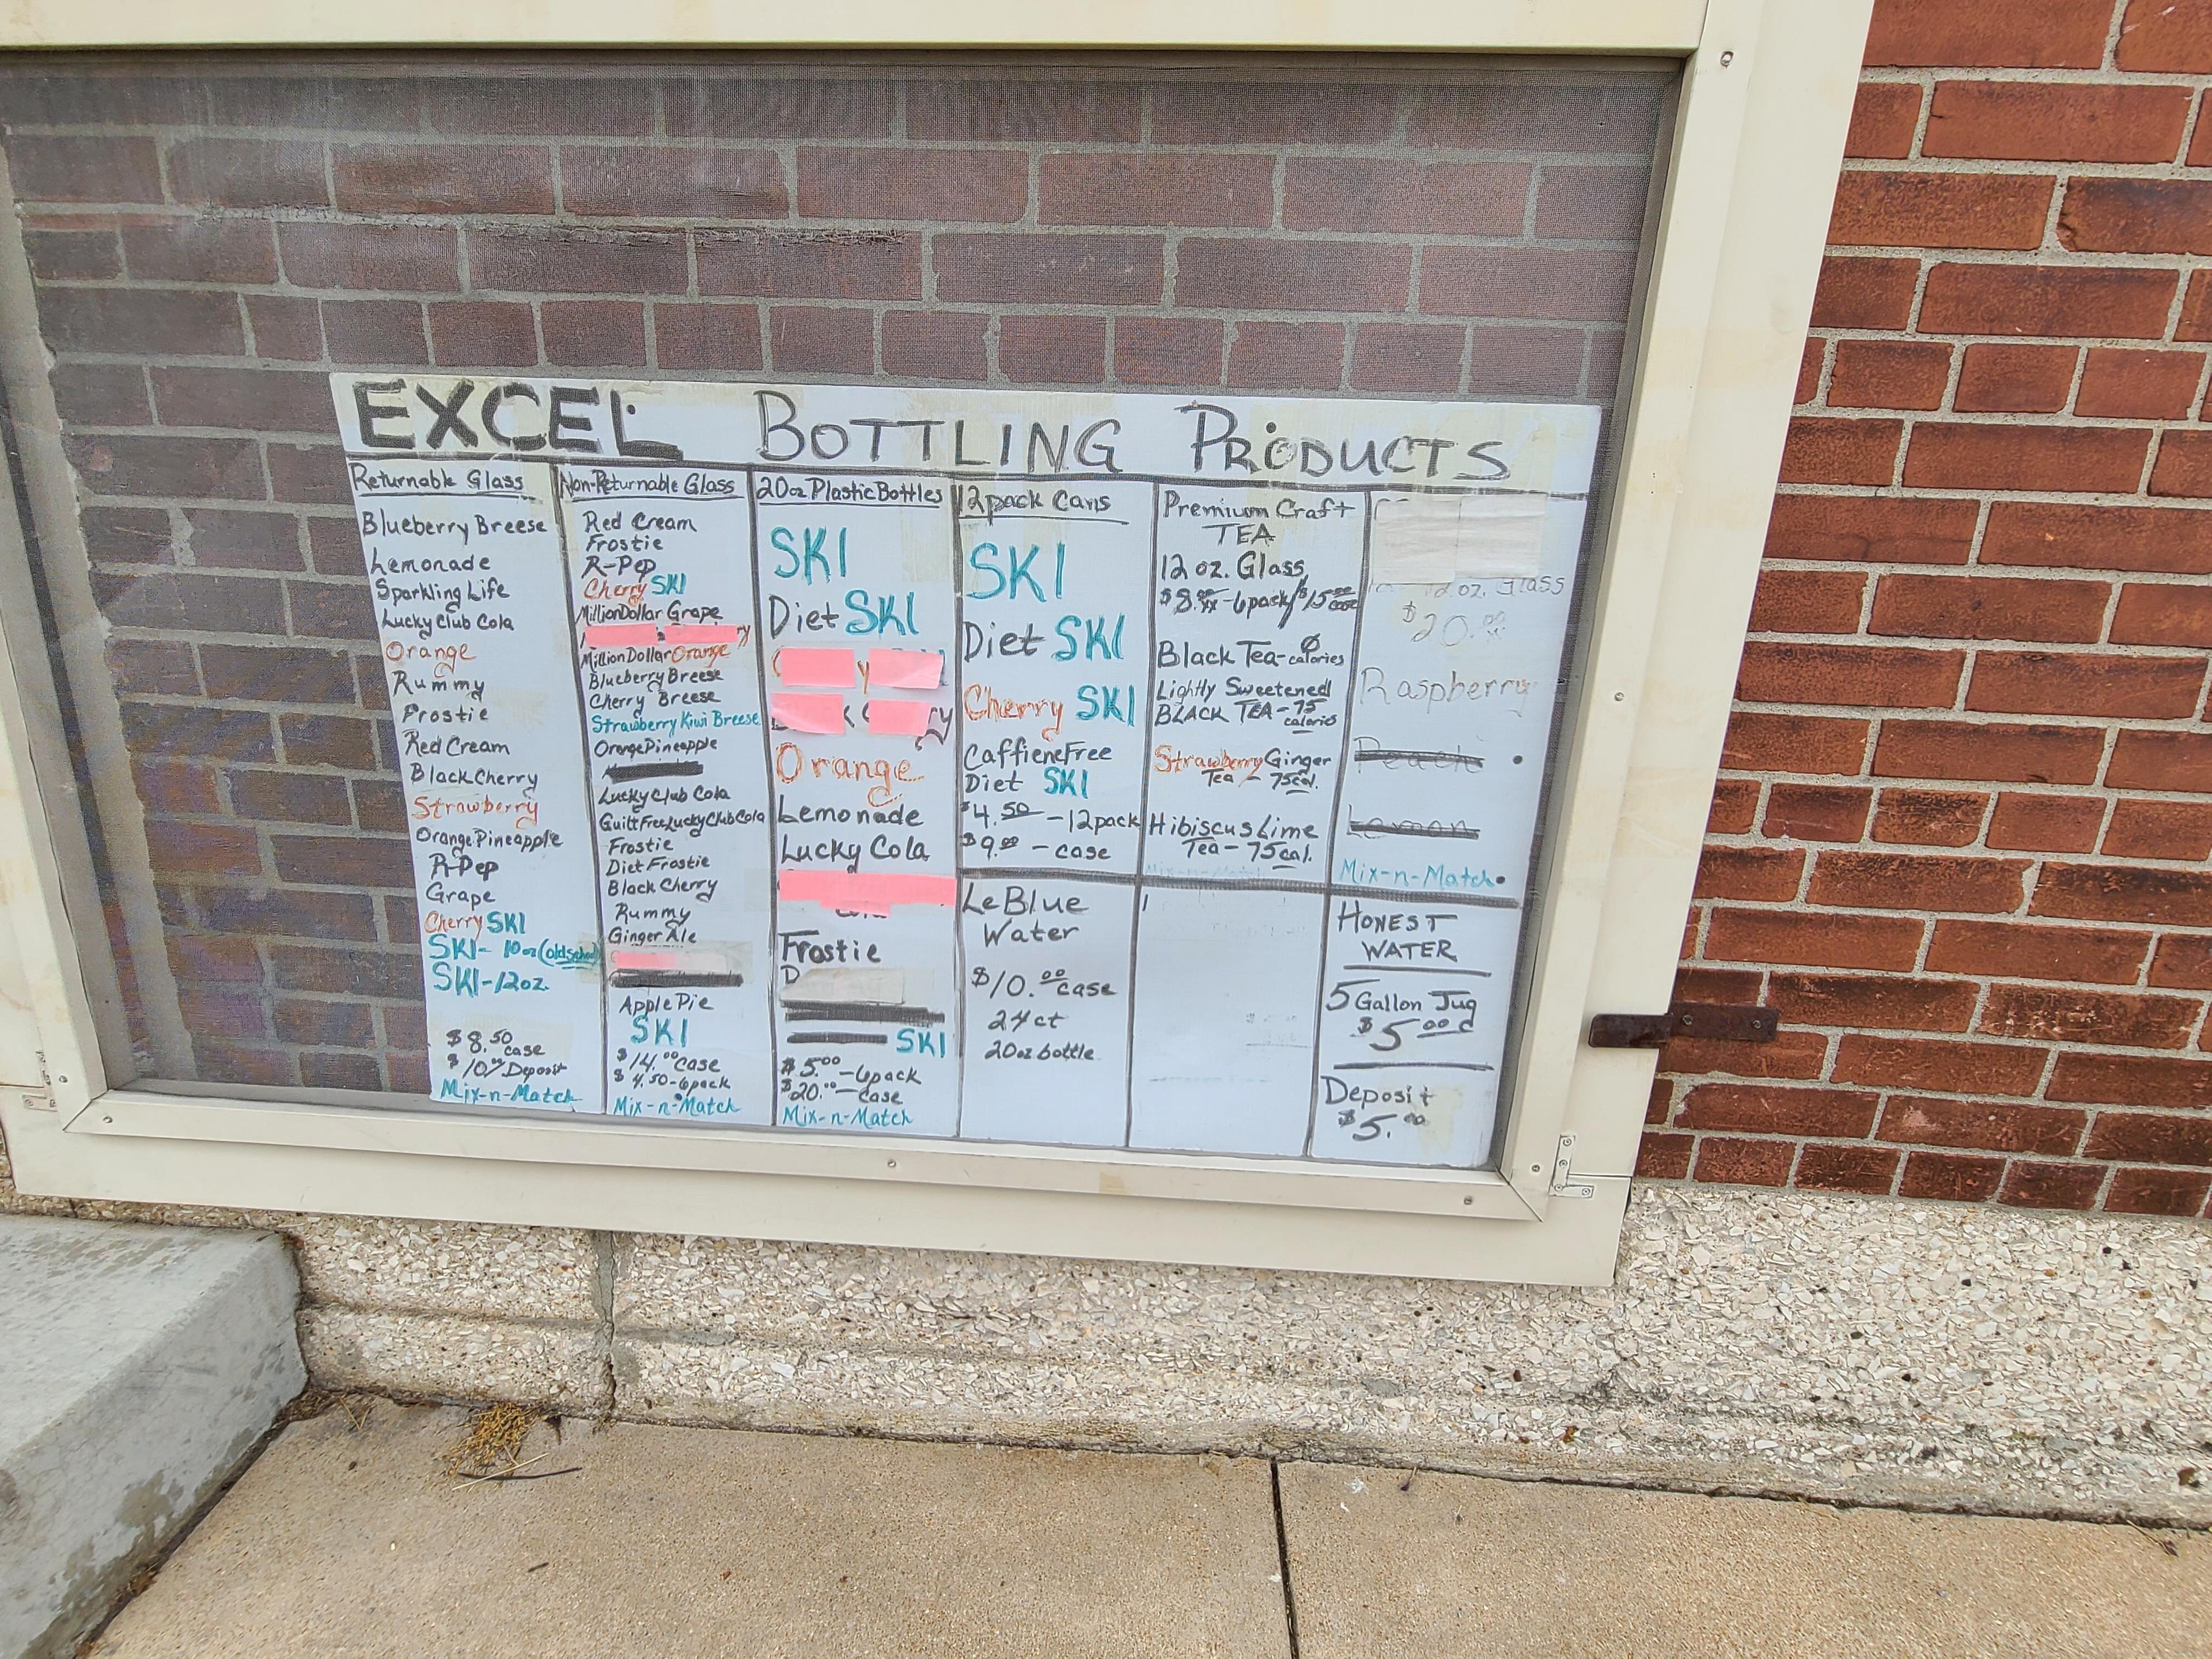 EXCEL BOTTLING PRODUCTS
Returnable Glass
Blueberry Breese
Lemonade
Sparkling Life
Lucky Club Cola
Orange
Rummy
Frostie
Red Cream
Black Cherry
Strawberry
Orange Pineapple
R-Pep
Grape
Cherry SKI
SKI- 10oz (old school)
SKI-12oz.
$8.50 case
$10.00 Deposit
Mix-n-Match
Non-Returnable Glass
Red Cream
Frostie
R-Pep
Cherry SKI
Million Dollar Grape
Million Dollar Orange
Blueberry Breese
Cherry Breese
Strawberry Kiwi Breese
Orange Pineapple
Lucky Club Cola
Guilt Free Lucky Club Cola
Frostie
Diet Frostie
Black Cherry
Rummy
Ginger Ale
Apple Pie
SKI
$14.00 case
$4.50-6pack
Mix-n-Match
20oz Plastic Bottles
SKI
Diet SKI
Orange
Lemonade
Lucky Cola
Frostie
D
SKI
$5.00-6pack
$20.00-case
Mix-n-Match
12pack Cans
SKI
Diet SKI
Cherry SKI
Caffiene Free
Diet SKI
$4.50 -12pack
$9.00 - case
Le Blue
Water
$10.00 case
24ct
20oz bottle
Premium Craft
TEA
12 oz. Glass
$8.00-6pack/$15.00 case
Black Tea-0 calories
Lightly Sweetened
BLACK TEA-75 calories
Strawberry Ginger
Tea - 75cal.
Hibiscus Lime
Tea - 75cal.
Mix-n-Match
12oz. Glass
$20.00
Raspberry
Peach
Lemon
Mix-n-Match
HONEST
WATER
5 Gallon Jug
$5.00
Deposit
$5.00